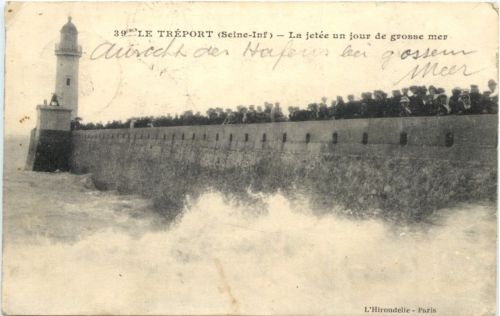 39 LE TRÉPORT (Seine-Inf) – La jetée un jour de grosse mer
Ansicht des Hafens bei grosser
Meer
L'Hirondelle - Paris